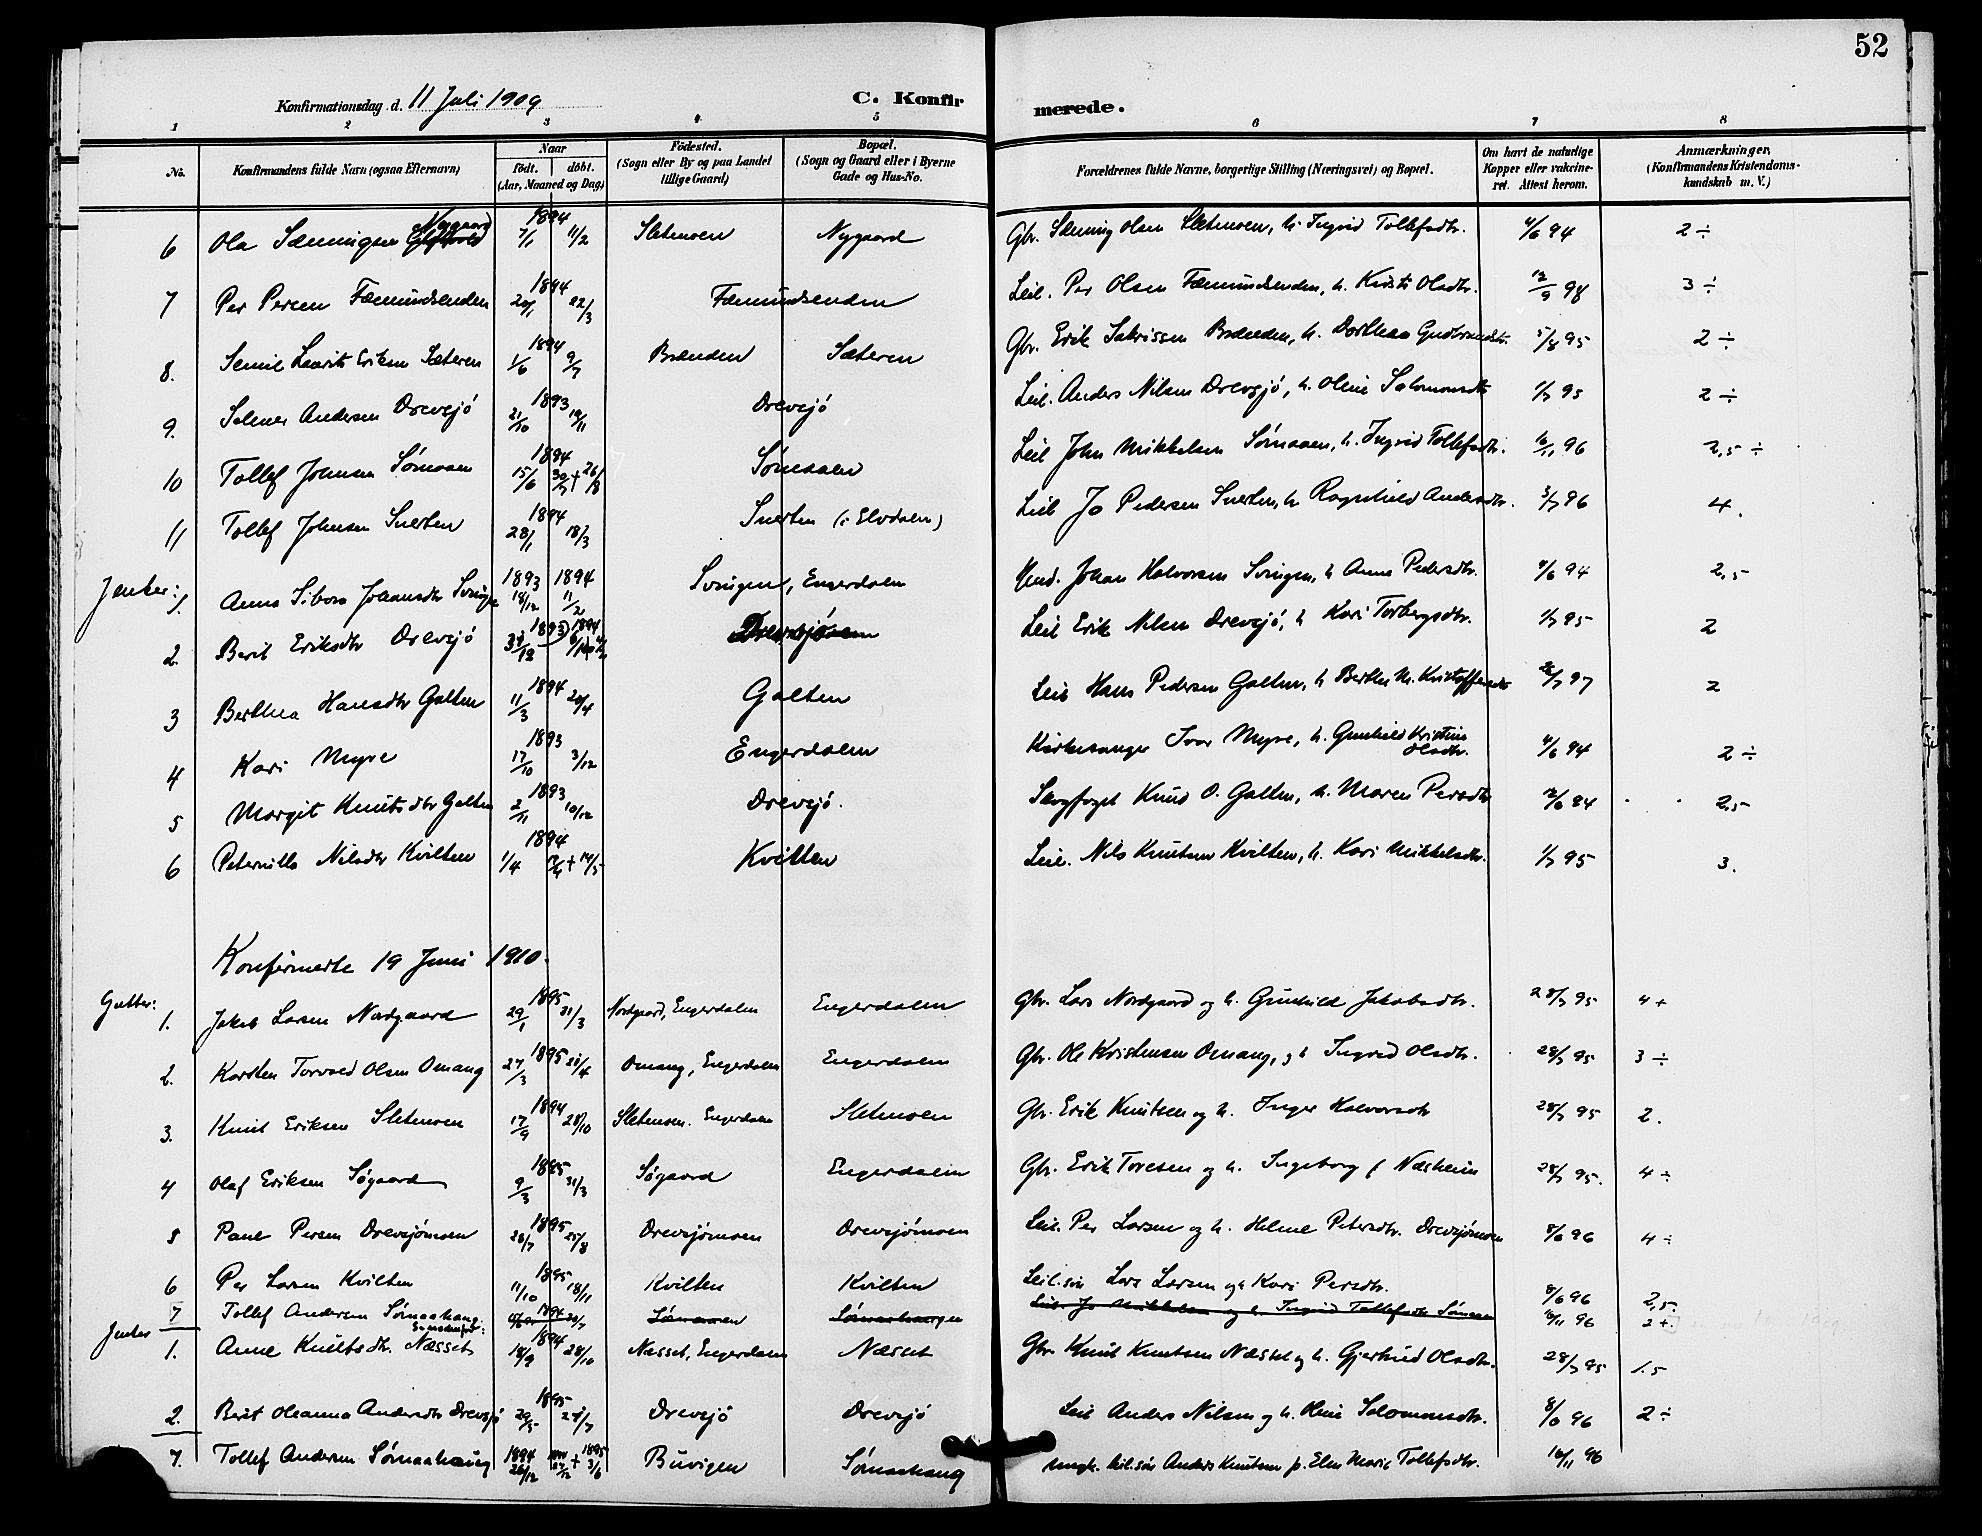 52
Konfirmationsdag d. 11 Juli 1909 C. Konfirmerede.
1 2 3 4 5 6 7 8
No. Konfirmandens fulde Navn (ogsaa Efternavn) Naar Födt. döbt. (Aar, Maaned og Dag) Födested. (Sogn eller By og paa Landet tillige Gaard) Bopæl. (Sogn og Gaard eller i Byerne Gade og Hus-No. Forældrenes fulde Navne, borgerlige Stilling (Næringsvei) og Bopæl. Om havt de naturlige Kopper eller vakcineret. Attest herom. Anmærkninger, (Konfirmandens Kristendomskundskab m. V.)
6 Ola Sæmingsen Nygaard 1894 7/1 11/2 Sletmoen Nygaard Gbr. Sæming Olsen Sletmoen, h. Ingrid Tollefsdtr. 4/6 94 2 ÷
7 Per Persen Fæmundsenden 1894 20/1 22/3 Fæmundsenden Leil. Per Olsen Fæmundsenden, h. Kirsti Olsdtr. 12/9 98 3 ÷
8. Semil Laurits Eriksen Sæteren 1894 1/6 9/7 Brænden Sæteren Gbr. Erik Sakrissen Brænden, h. Dorthea Gudbrandsdtr. 5/8 95 2 ÷
9. Selmer Andersen Drevsjö 1893 21/10 19/11 Drevsjö Leil. Anders Nilsen Drevsjö, h. Oline Salomonsdtr 1/7 95 2 ÷
10 Tollef Johnsen Sømaaen 1894 15/6 30/7 + 26/8 Sømaaen Leil John Mikkelsen Sømaaen, h. Ingrid Tollefsdtr. 16/11 96 2,5 ÷
11 Tollef Johnsen Snerten 1894 28/1 18/3 Snerten (i Elvdalen) Leil Jo Pedersen Snerten, h Ragnhild Andersdtr. 3/7 96 4.
Jenter: 1. Anna Sibora Johansdtr Svingen 1893 18/12 1894 11/2 Svingen, Engerdalen Johan Halvorsen Svingen, h Anna Pedersdtr. 9/6 94 2,5
2. Berit Eriksdtr Drevsjö 1893 31/12 1894 Drevsjöen Leil Erik Nilsen Drevsjö, h Kari Torbergsdtr. 1/7 95 2
3 Berthea Hansdtr Galten 1894 11/3 29/4 Galten Leil Hans Pedersen Galten, h Berthe M. Kristoffersdtr 26/7 97 2
4 Kari Myre 1893 17/10 3/12 Engerdalen Kirkesanger Ivar Myre, h. Gunhild Kristine Olsdtr. 4/6 94 2 ÷
5 Margit Knutsdtr Galten 1893 2/11 10/12 Drevsjö. Skogfoged Knud O. Galten, h. Maren Persdtr 12/6 94 2,5
6 Peternille Nilsdtr Kvilten 1894 1/4 14/5 Kvilten Leil. Nils Knutsen Kvilten, h. Kari Mikkelsdtr. 1/7 95 3.
Konfirmerte 19 Juni 1910.
Gutter: 1. Jakob Larsen Nordgaard 1895 29/1 31/3 Nordgaard, Engerdalen Engerdalen Gbr. Lars Nordgaard og h. Gunhild Jakobsdtr. 28/7 95 4 +
2. Karsten Torvald Olsen Omang 1895 27/3 21/4 Omang, Engerdalen Engerdalen Gbr. Ole Kristensen Omang, og h Ingrid Olsdtr. 28/7 95 3 ÷
3. Knut Eriksen Sletmoen 1894 17/9 28/10 Sletmoen. Engerdalen Sletmoen Gbr. Erik Knutsen og h. Inger Halvorsdtr 28/7 95 2.
4 Olaf Eriksen Søgaard 1895 9/3 31/3 Søgaard Engerdalen Gbr. Erik Toresen og h. Ingeborg f Næsheim 28/7 95. 4 ÷
5 Paul Persen Drevsjømoen 1895 28/7 25/8 Drevsjømoen Drevsjømoen Leil. Per Larsen og h. Helene Petersdtr. Drevsjømoen 8/6 96 4 ÷
6 Per Larsen Kvilten 1895 11/10 18/11 Kvilten Kvilten Leil.søn Lars Larsen og h Kari Persdtr. 8/6 96 2,5.
7 Tollef Andersen Sømaahaug 1894 Sømaaen Sømaahaugen Leil. Jo Mikkelsen og h. Ingrid Tollefsdtr Sømaaen 16/11 96 2 +.
Jenter 1. Anne Knutsdtr. Næsset 1894 18/9 28/10 Næsset, Engerdalen Næsset Gbr Knut Knutsen Næsset og h. Gjertrud Olsdtr. 28/7 95 1.5
2. Berit Oleanna Andersdtr Drevsjö 1895 29/5 21/7 Drevsjö Drevsjö Leil Anders Nilsen og h. Oline Salomonsdtr. 8/6 96 2 ÷
7. Tollef Andersen Sømaahaug 1894 26/12 + 1895 3/6 Buvigen Sømaahaug Ungk. leil.søn Anders Knutsen p. Elen Marie Tollefsdtr. 16/11 96